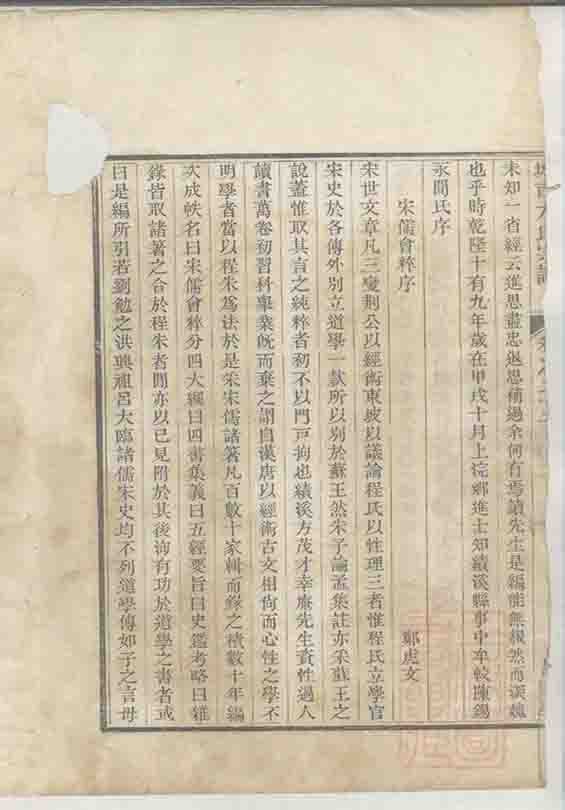 未知一省經云進思盡忠退思補過余何有焉讀先生是編能無穆然而深媿
也乎時乾隆十有九年歲在甲戌十月上浣鄉進士知績溪縣事中牟較陳錫
永聞氏序
宋儒會粹序
鄭虎文
宋世文章凡三變荆公以經術東坡以議論程氏以性理三者惟程氏立學官
宋史於各傳外別立道學一款所以別於蘇王然朱子論孟集註亦采蘇王之
說蓋惟取其言之純粹者初不以門戸拘也績溪方茂才幸庵先生資性過人
讀書萬卷初習科舉業旣而棄之謂自漢唐以經術古文相尙而心性之學不
明學者當以程朱爲法於是采宋儒諸箸凡百數十家輯而錄之積數十年編
次成帙名曰宋儒會粹分四大綱曰四書集義曰五經要旨曰史鑑考略曰雜
錄皆取諸著之合於程朱者閒亦以己見附於其後洵有功於道學之書者或
曰是編所引若劉勉之洪興祖呂大臨諸儒宋史均不列道學傳如子之言毋